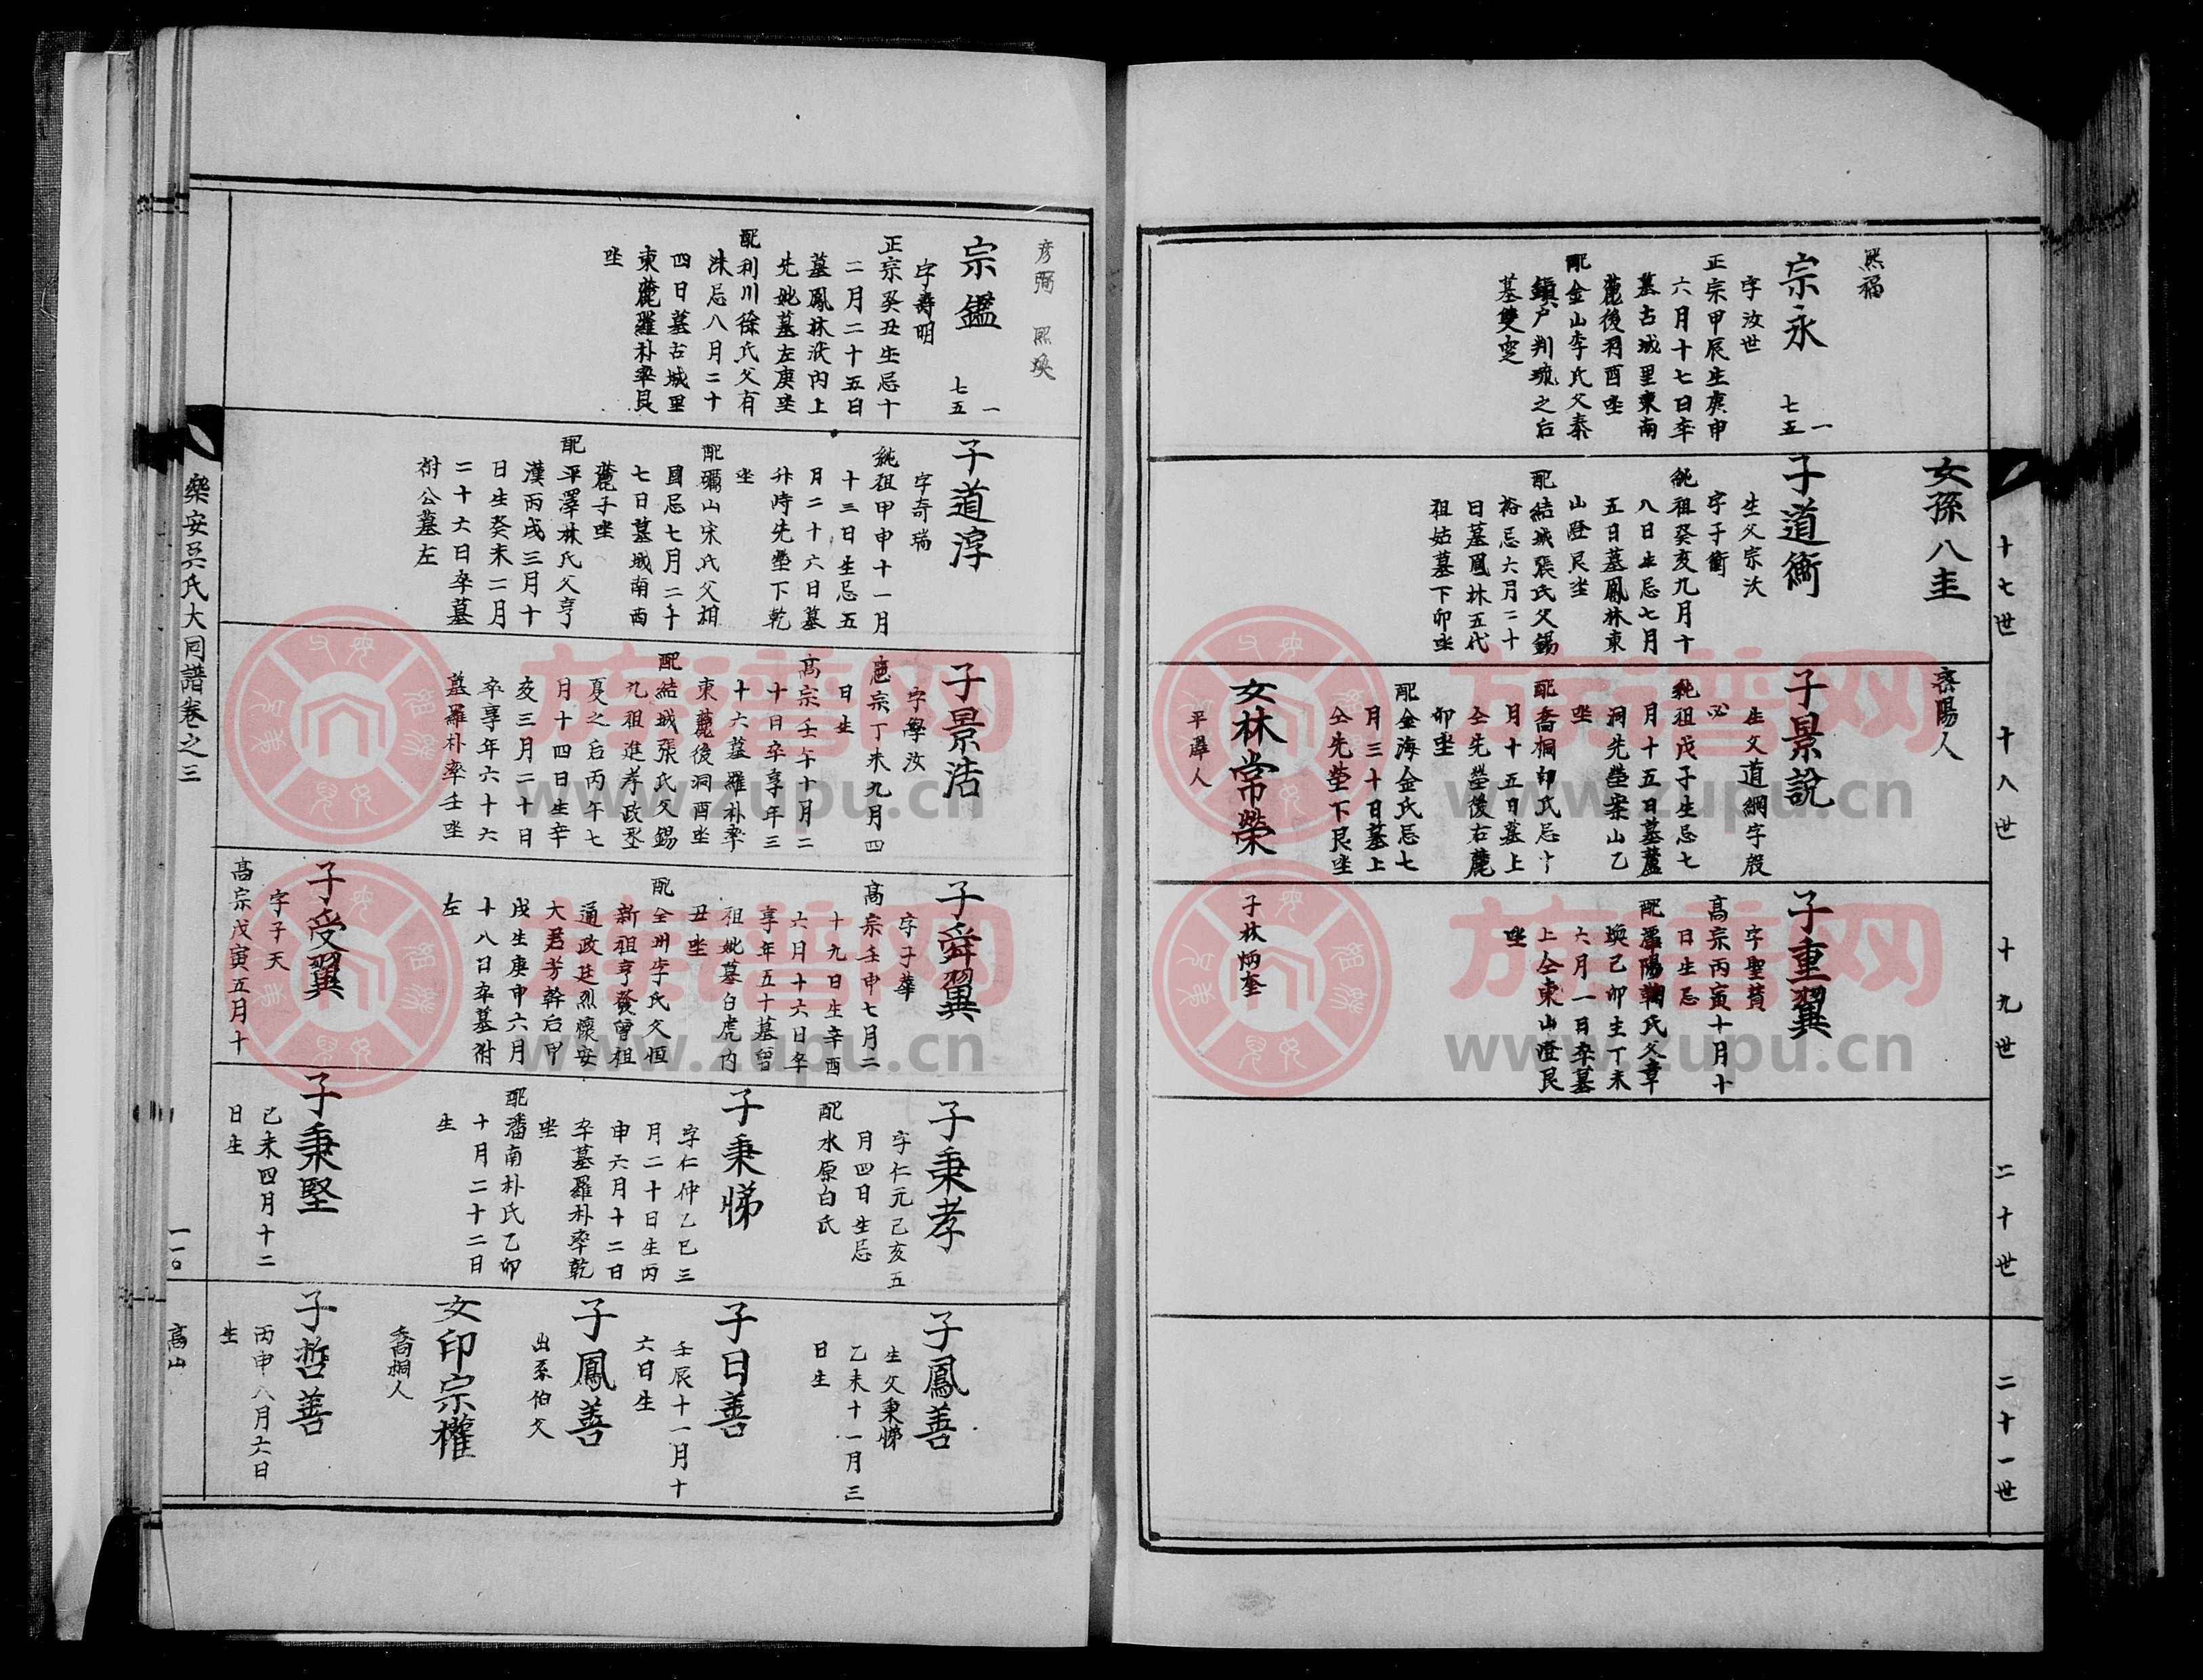 十七世
十八世
十九世
二十世
二十一世
女孫八圭
密陽人
熙福
宗永 七五一
字汝世
正宗甲辰生庚申
六月十七日卒
墓古城里東南
麓後洞酉坐
配金山李氏父泰
鎮戶判琉之后
墓雙窆
子道衡
生父宗沃
字子衡
純祖癸亥九月十
八日生忌七月
五日墓鳳林東
山嶝艮坐
配結城張氏父錫
裕忌六月二十
日墓鳳林五代
祖姑墓下卯坐
子景說
生父道綱字殷
必
純祖戊子生忌七
月十五日墓蘆
洞先塋案山乙
坐
配喬桐印氏忌十
月十五日墓上
仝先塋後右麓
卯坐
配金海金氏忌七
月三十日墓上
仝先塋下艮坐
女林常榮
平澤人
子重翼
字聖賛
高宗丙寅十月十
日生忌
配潭陽鞠氏父章
煥己卯生丁未
六月一日卒墓
上仝東山嶝艮
坐
子林炳奎
彦弼 熙煥
宗鑑 七五一
字壽明
正宗癸丑生忌十
二月二十五日
墓鳳林洑內上
先妣墓左庚坐
配利川徐氏父有
洙忌八月二十
四日墓古城里
東麓羅朴率艮
坐
子道淳
字奇瑞
純祖甲申十一月
十三日生忌五
月二十六日墓
升峙先塋下乾
坐
配礪山宋氏父相
國忌七月二十
七日墓城南西
麓子坐
配平澤林氏父亨
漢丙戌三月十
日生癸未二月
二十六日卒墓
祔公墓左
子景浩
字學汝
憲宗丁未九月四
日生
高宗壬午十月二
十日卒享年三
十六墓羅朴率
東麓後洞酉坐
配結城張氏父錫
九祖進孝政丞
夏之后丙午七
月十四日生辛
亥三月二十日
卒享年六十六
墓羅朴率壬坐
子舜翼
字子華
高宗壬申七月二
十九日生辛酉
六月十六日卒
享年五十墓曾
祖妣墓白虎內
丑坐
配全州李氏父恒
新祖亨發曾祖
通政廷烈懷安
大君芳幹后甲
戌生庚申六月
十八日卒墓祔
左
子受翼
字子天
高宗戊寅五月十
子秉孝
字仁元己亥五
月四日生忌
配水原白氏
子秉悌
字仁仲乙巳三
月二十日生丙
申六月十二日
卒墓羅朴率乾
坐
配潘南朴氏乙卯
十月二十二日
生
子秉堅
己未四月十二
日生
子鳳善
生父秉悌
乙未十一月三
日生
子日善
壬辰十一月十
六日生
子鳳善
出系伯父
女印宗權
喬桐人
子哲善
丙申八月六日
生
樂安吳氏大同譜卷之三
一一〇
高山
族谱网
www.zupu.cn
族谱网
www.zupu.cn
族谱网
www.zupu.cn
族谱网
www.zupu.cn